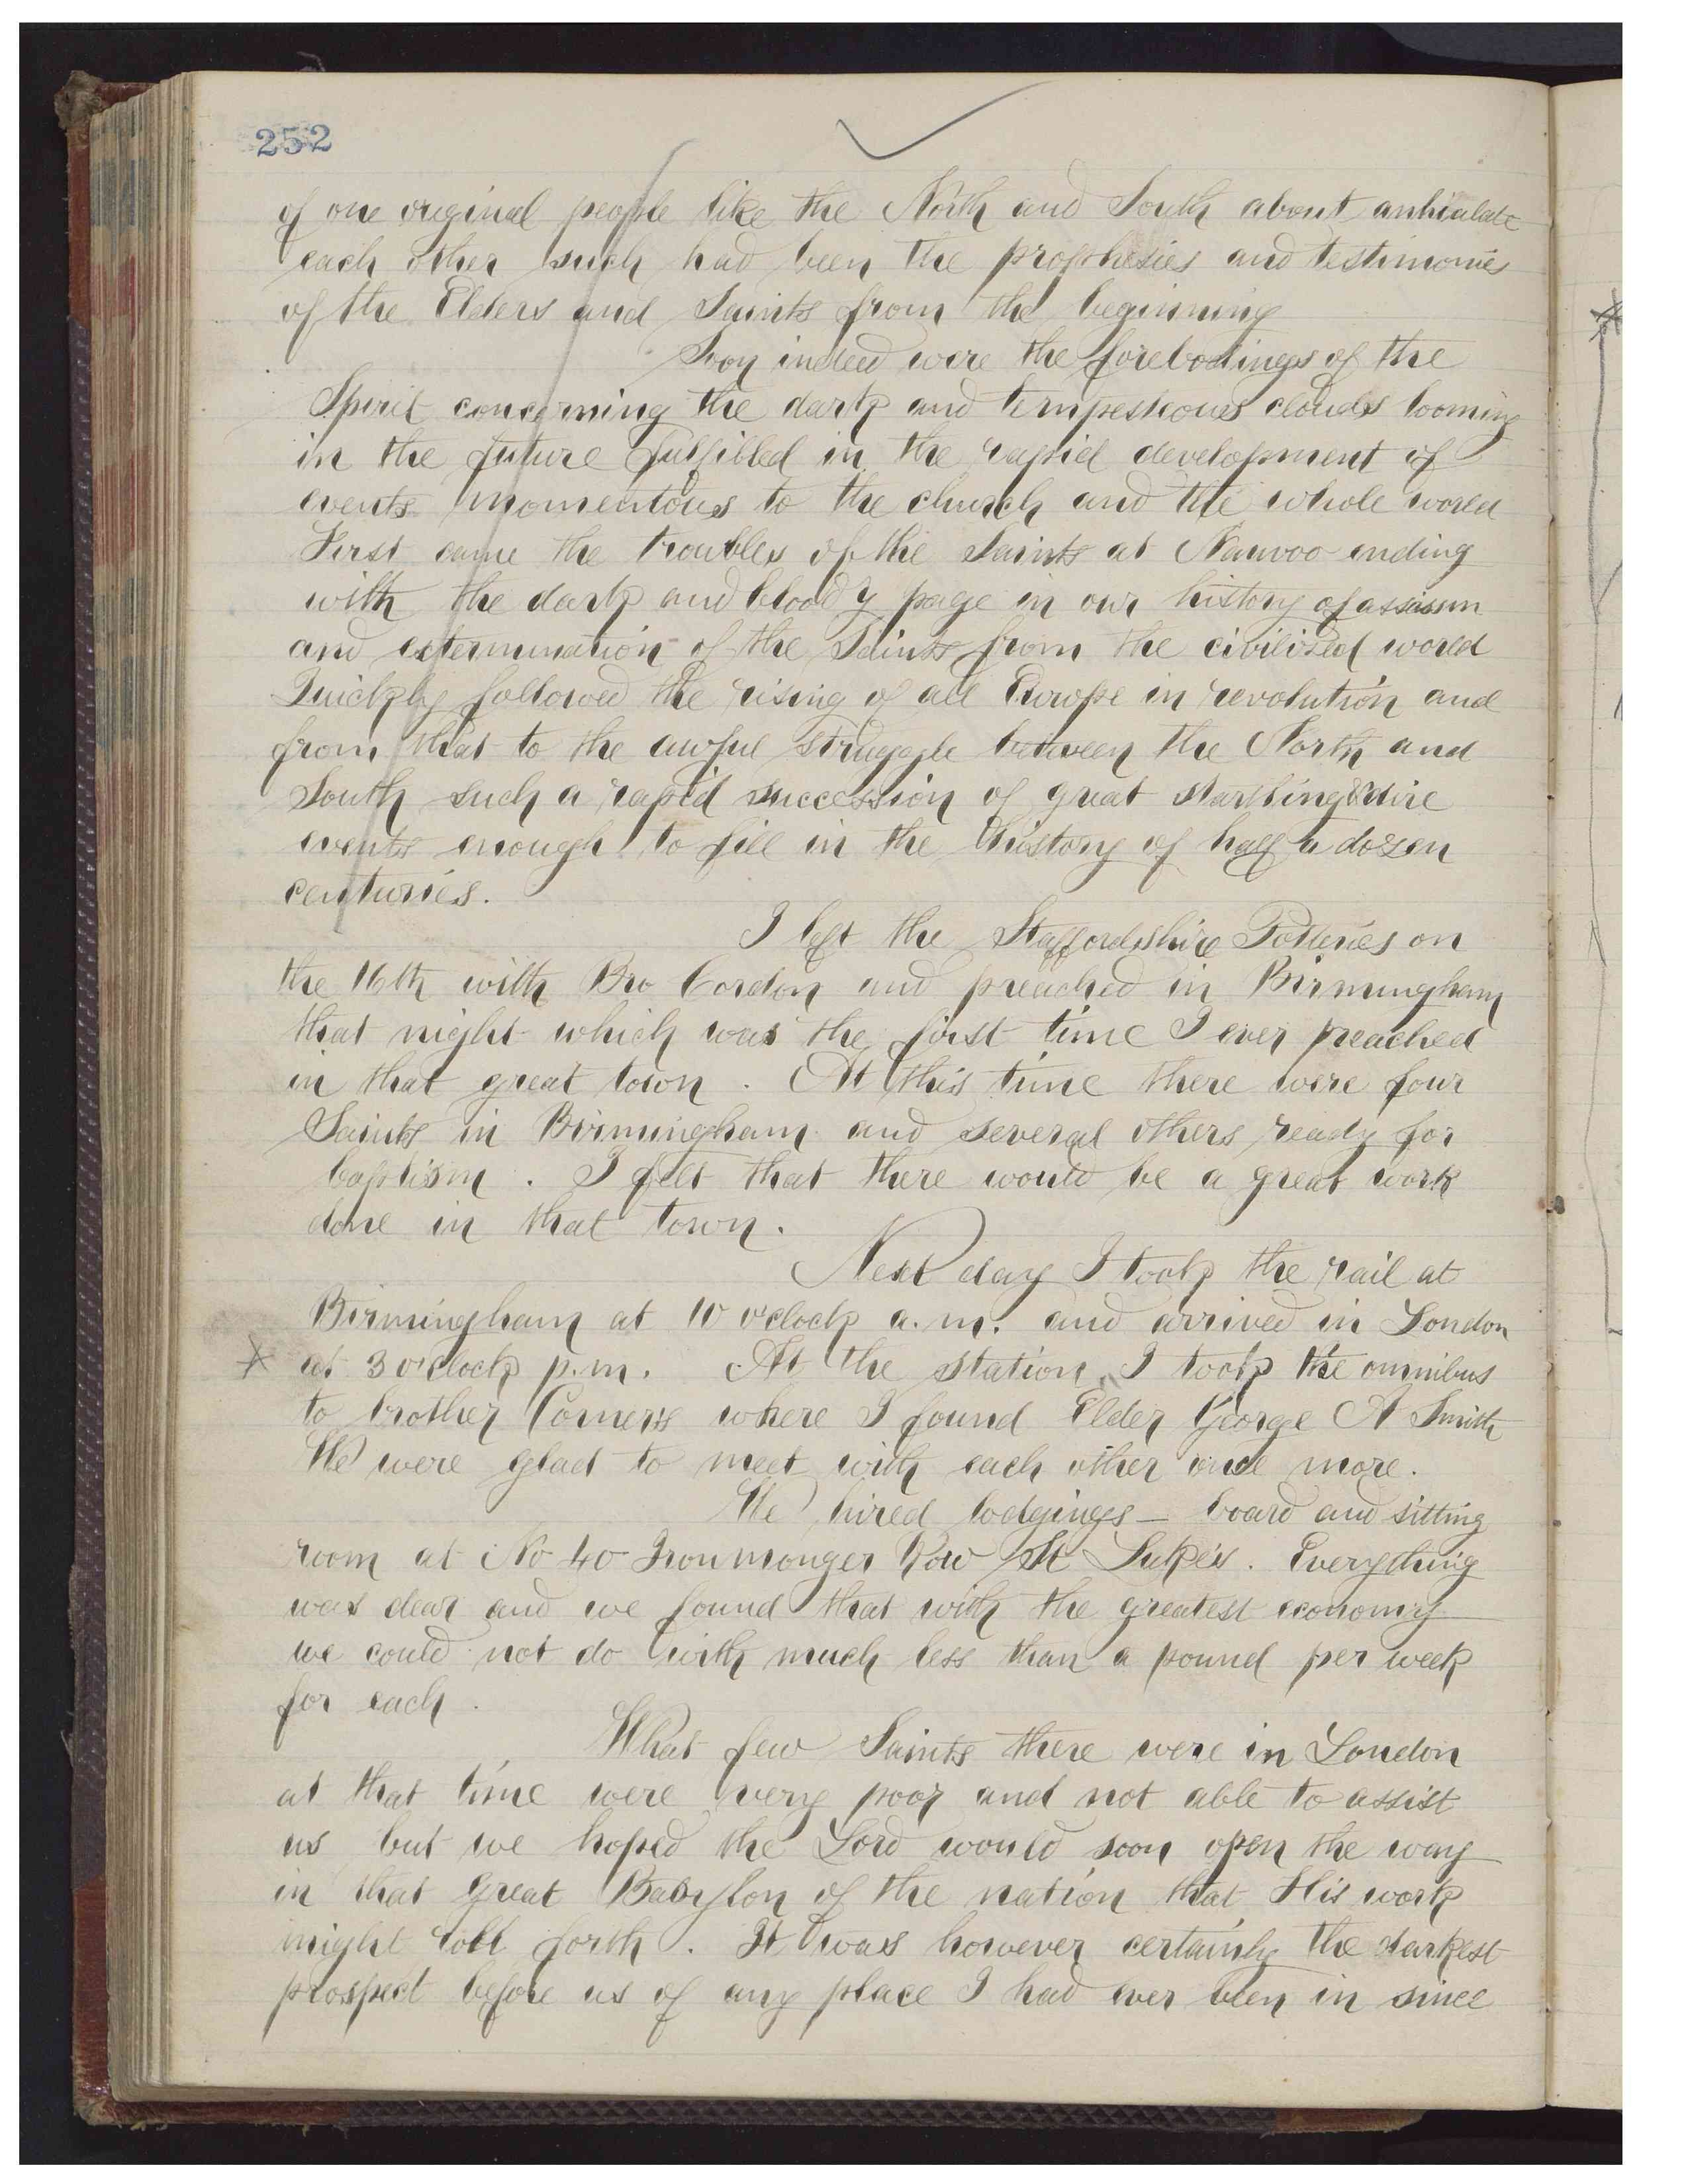 252
of one original people like the North and South about anhialate
each other such had been the prophesies and testimonies
of the Elders and Saints from the beginning
Soon indeed were the forebodings of the
Spirit concerning the dark and tempesteous clouds looming
in the future fulfilled in the rapid development of
events momentous to the church and the whole world
First came the troubles of the Saints at Nauvoo ending
with the dark and bloody page in our history of assassin
and extermination of the Saints from the civilized world
Quickly followed the rising of all Europe in revolution and
from that to the awful struggle between the North and
South such a rapid succession of great startling & dire
events enough to fill in the history of half a dozen
centuries.
I left the Staffordshire Potteries on
the 16th with Bro Cordon and preached in Birmingham
that night which was the first time I ever preached
in that great town. At this time there were four
Saints in Birmingham and several others ready for
baptism. I felt that there would be a great work
done in that town.
Next day I took the rail at
Birmingham at 10 o'clock a.m. and arrived in London
at 3 o'clock p.m. At the station I took the omnibus
to brother Corners where I found Elder George A Smith
We were glad to meet with each other once more.
We hired lodgings — board and sitting
room at No 40 Ironmonger Row St Luke's. Everything
was dear and we found that with the greatest economy
we could not do with much less than a pound per week
for each.
What few Saints there were in London
at that time were very poor and not able to assist
us but we hoped the Lord would soon open the way
in that great Babylon of the nation that His work
might roll forth. It was however certainly the darkest
prospect before us of any place I had ever been in since